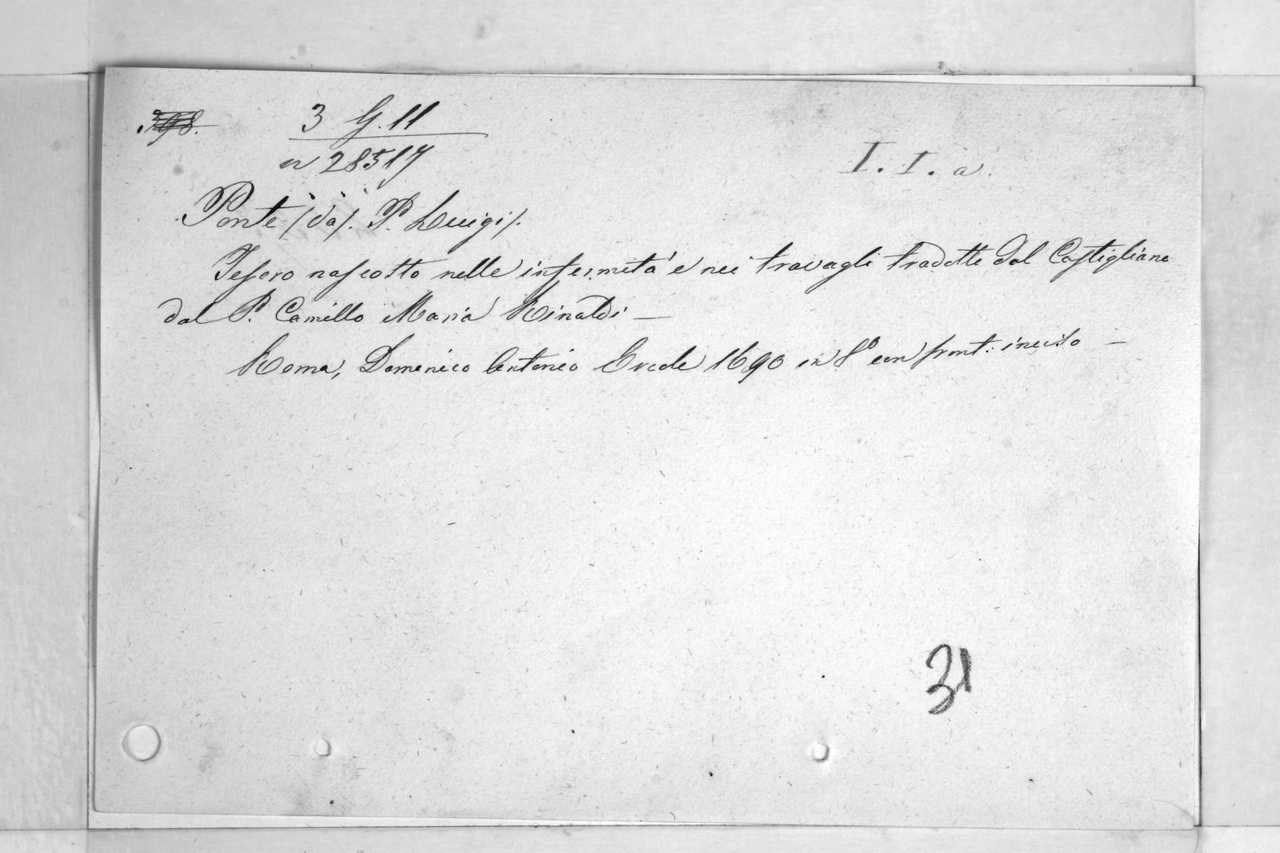 398.
3 G. 11
n 28517
I. I. a.
Ponte /da/. P. Luigi/.
Tesoro nascotto nelle infermità e nei travagli tradotto dal Castigliano
dal P. Camillo Maria Rinaldi —
Roma, Domenico Antonio Ercole 1690 in 8° con front: inciso —
31